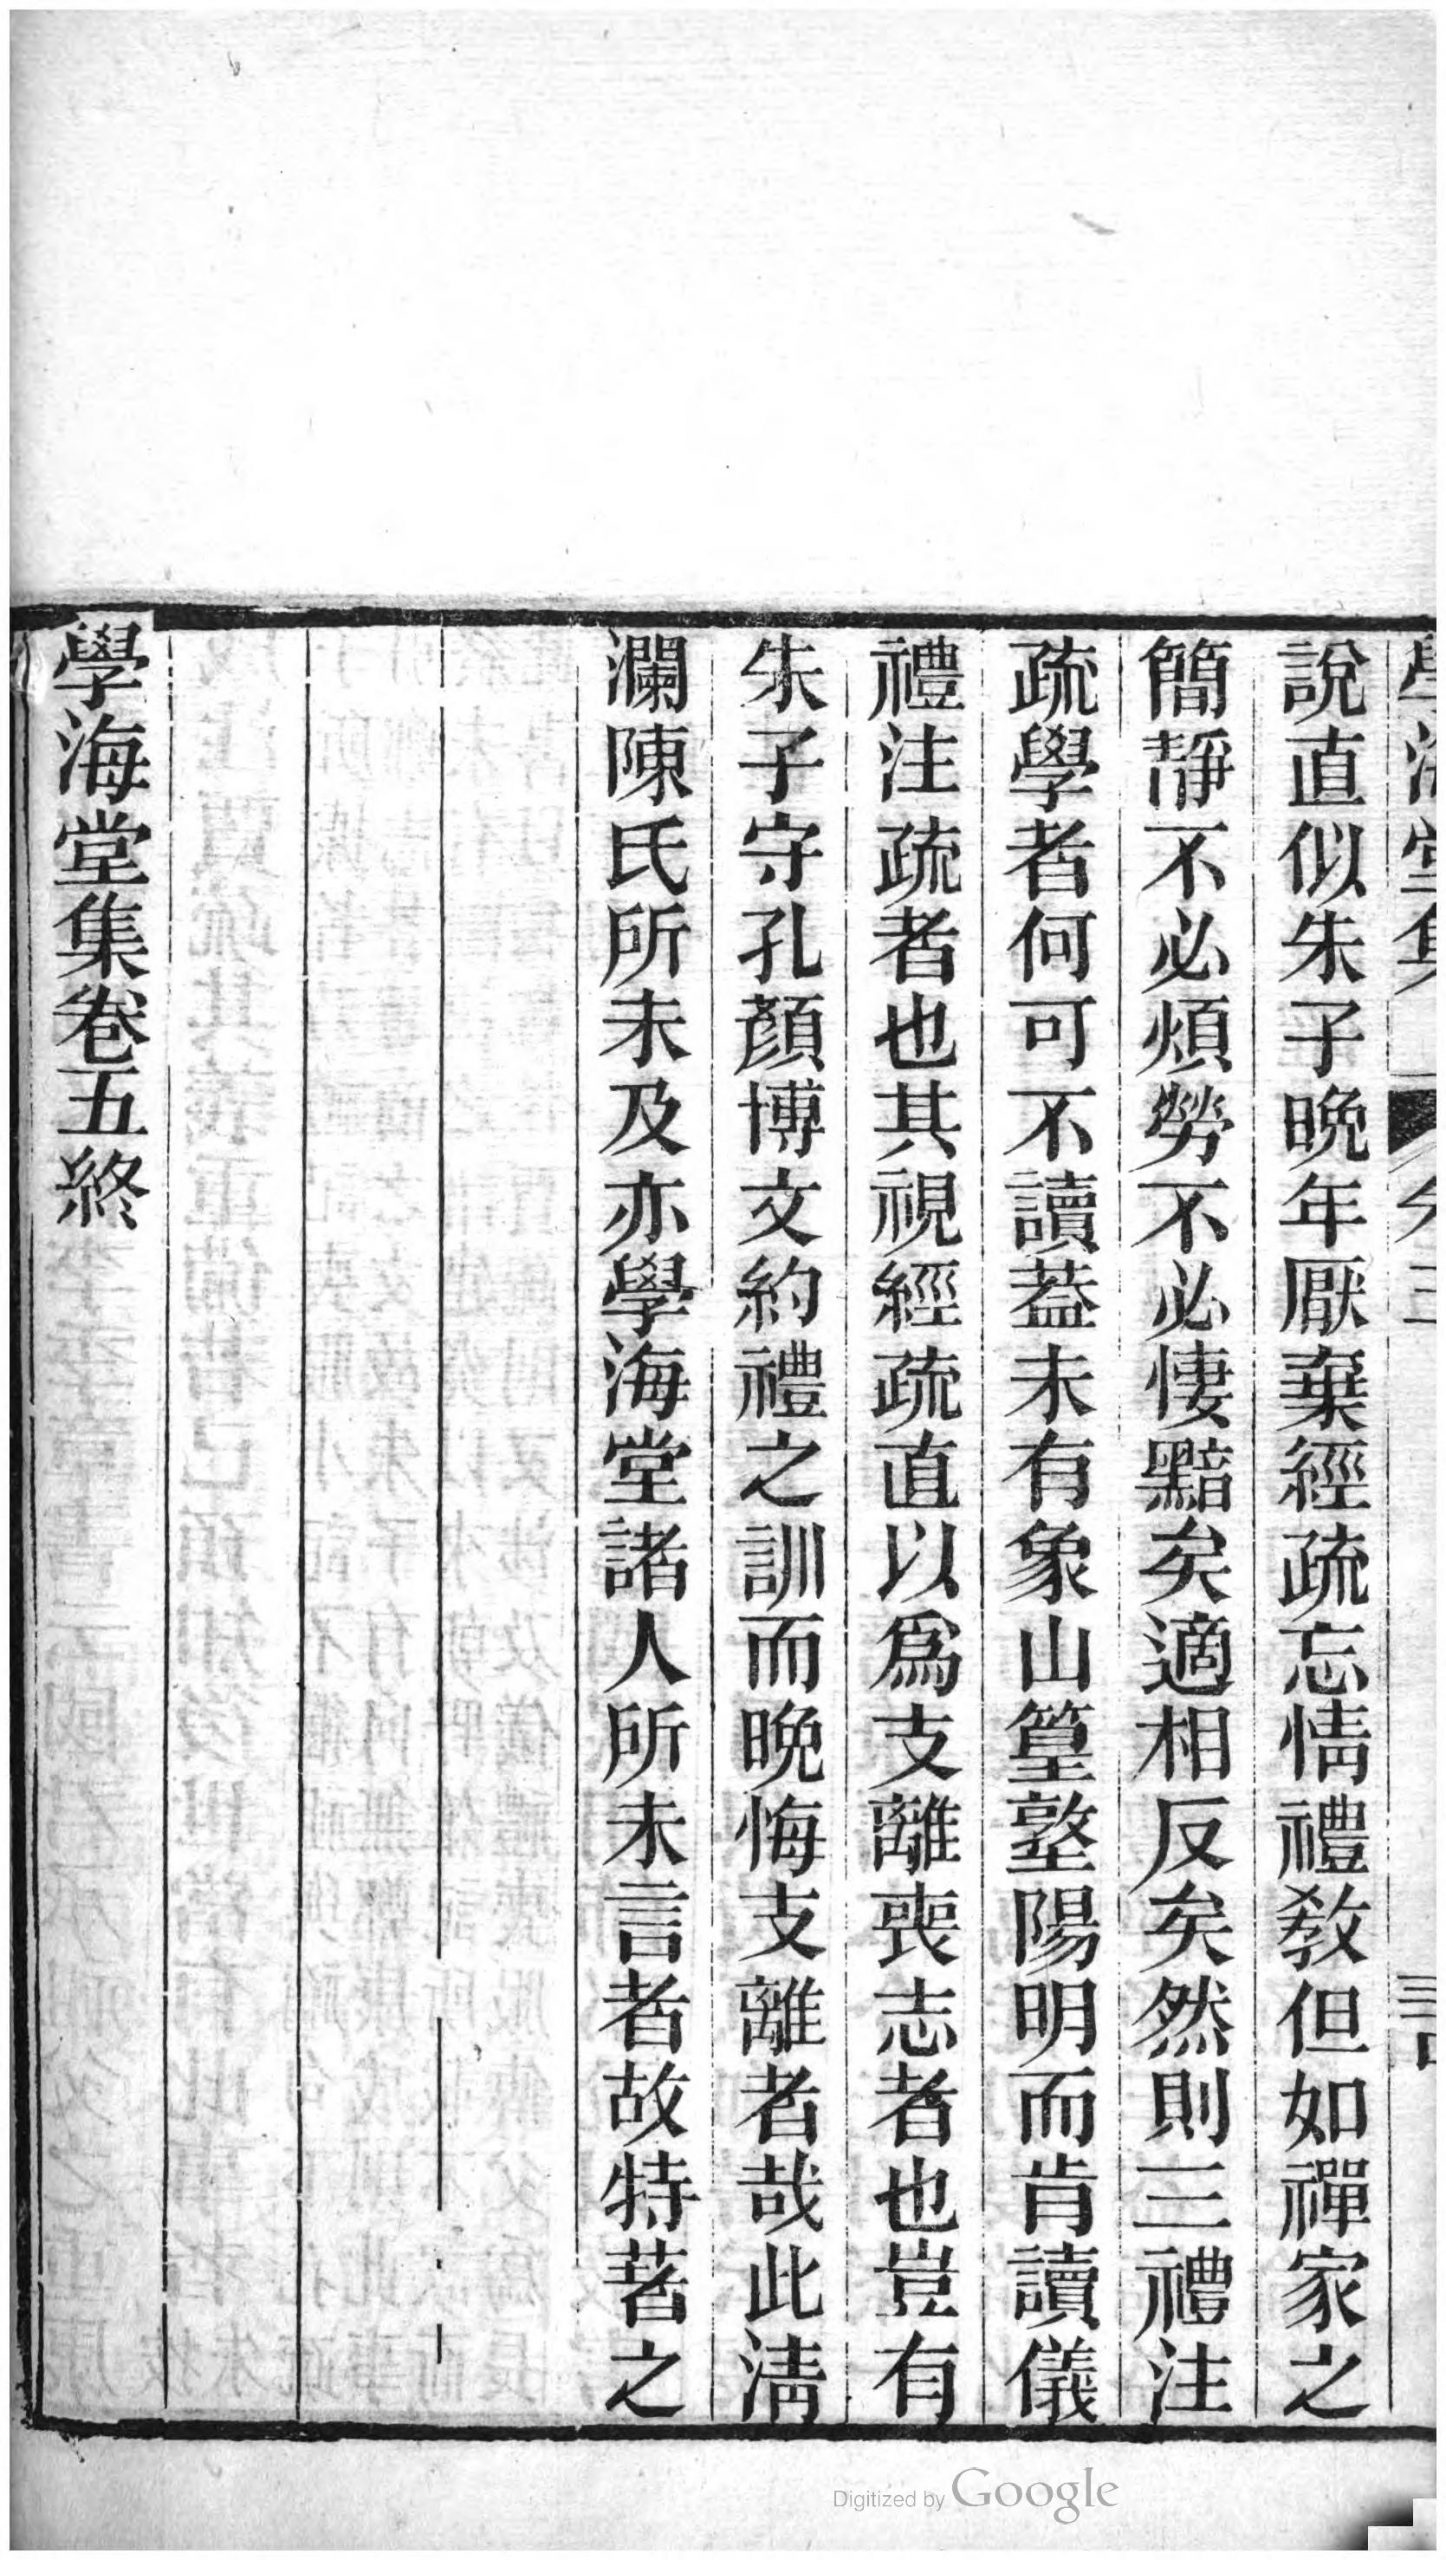 說直似朱子晚年厭棄經疏忘情禮敎但如禪家之
簡靜不必煩勞不必悽黯矣適相反矣然則三禮注
疏學者何可不讀葢未有象山篁墪陽明而肯讀儀
禮注疏者也其視經疏直以爲支離喪志者也豈有
朱子守孔顏博文約禮之訓而晚悔支離者哉此淸
瀾陳氏所未及亦學海堂諸人所未言者故特著之
學海堂集卷五終
Digitized by Google